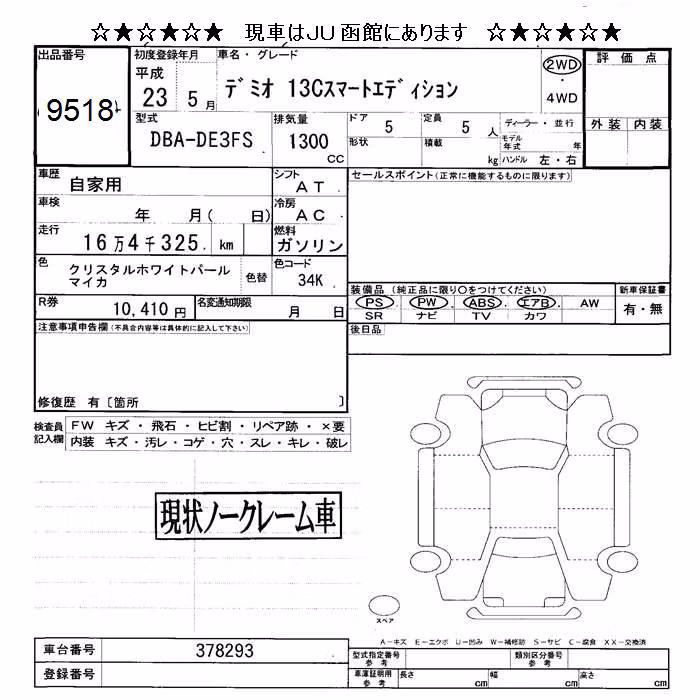 ☆★☆★☆★ 現車はJU函館にあります ☆★☆★☆★
出品番号
9518
初度登録年月
平成
23 5 月
車名・グレード
デミオ 13Cスマートエディション
2WD
4WD
評価点
外装 内装
型式
DBA-DE3FS
排気量
1300
CC
ドア
5
定員
5 人
形状
積載
kg
ディーラー・並行
モデル
年式 年
ハンドル 左・右
車歴
自家用
シフト
AT
セールスポイント(正常に機能するものに限ります)
車検
年 月( 日)
冷房
AC
走行
16万4千325 km
燃料
ガソリン
色
クリスタルホワイトパール
マイカ
色替
色コード
34K
装備品(純正品に限り○をつけてください)
PS PW ABS エアB AW
SR ナビ TV カワ
新車保証書
有・無
R券
10,410円
名変通知期限
月 日
後日品
注意事項申告欄(不具合内容等は具体的に記入して下さい)
修復歴 有〔箇所 〕
検査員
記入欄
FW キズ・飛石・ヒビ割・リペア跡・×要
内装 キズ・汚レ・コゲ・穴・スレ・キレ・破レ
現状ノークレーム車
スペア
A-キズ E-エクボ U-凹み W-補修跡 S-サビ C-腐食 XX-交換済
車台番号
378293
登録番号
型式指定番号
参考
類別区分番号
参考
車庫証明用
参考
長さ cm
幅 cm
高さ cm